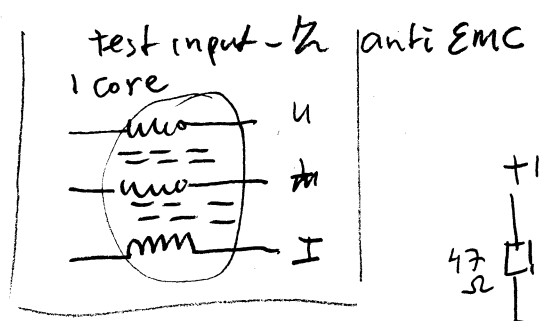 test input - Z
anti EMC
1 core
U
I
+1
47
Ω